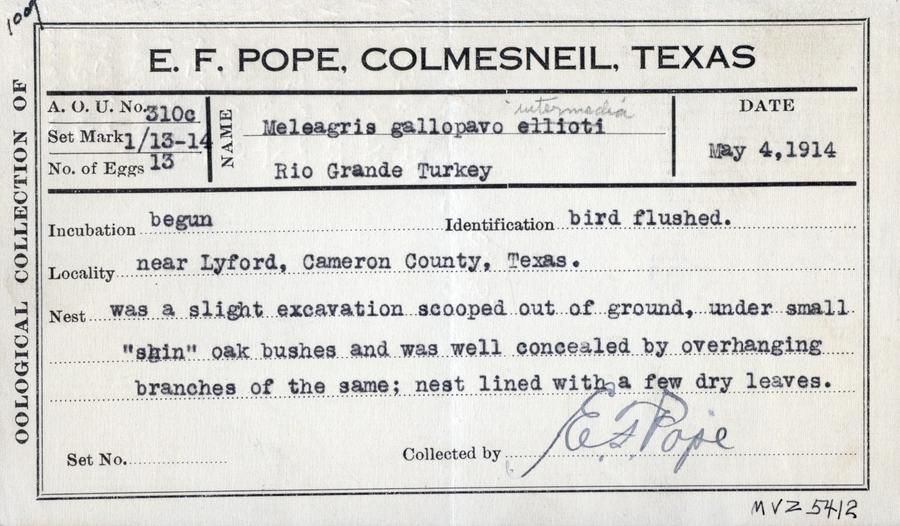 E. F. POPE, COLMESNEIL, TEXAS
OOLOGICAL COLLECTION OF
A. O. U. No. 310c
Set Mark 1/13-14
No. of Eggs 13
NAME
intermedia
Meleagris gallopavo ellioti
Rio Grande Turkey
DATE
May 4,1914
Incubation begun Identification bird flushed.
Locality near Lyford, Cameron County, Texas.
Nest was a slight excavation scooped out of ground, under small
"shin" oak bushes and was well concealed by overhanging
branches of the same; nest lined with a few dry leaves.
Set No. Collected by E. F. Pope
MVZ 5412